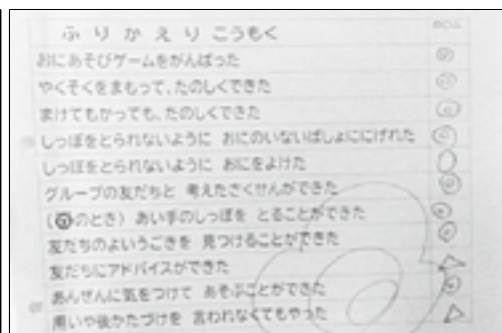 ふりかえりこうもく
おにあそびゲームをがんばった
やくそくをまもって、たのしくできた
まけてもかっても、たのしくできた
しっぽをとられないように おにのいないばしょににげれた
しっぽをとられないように おにをよけた
グループの友だちと 考えたさくせんができた
(のとき) あい手のしっぽを とることができた
友だちのよいうごきを 見つけることができた
友だちにアドバイスができた
あんぜんに気をつけて あそぶことができた
用いや後かたづけを 言われなくてもやった